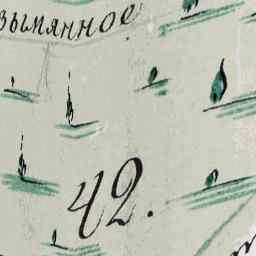 зымянное
42.